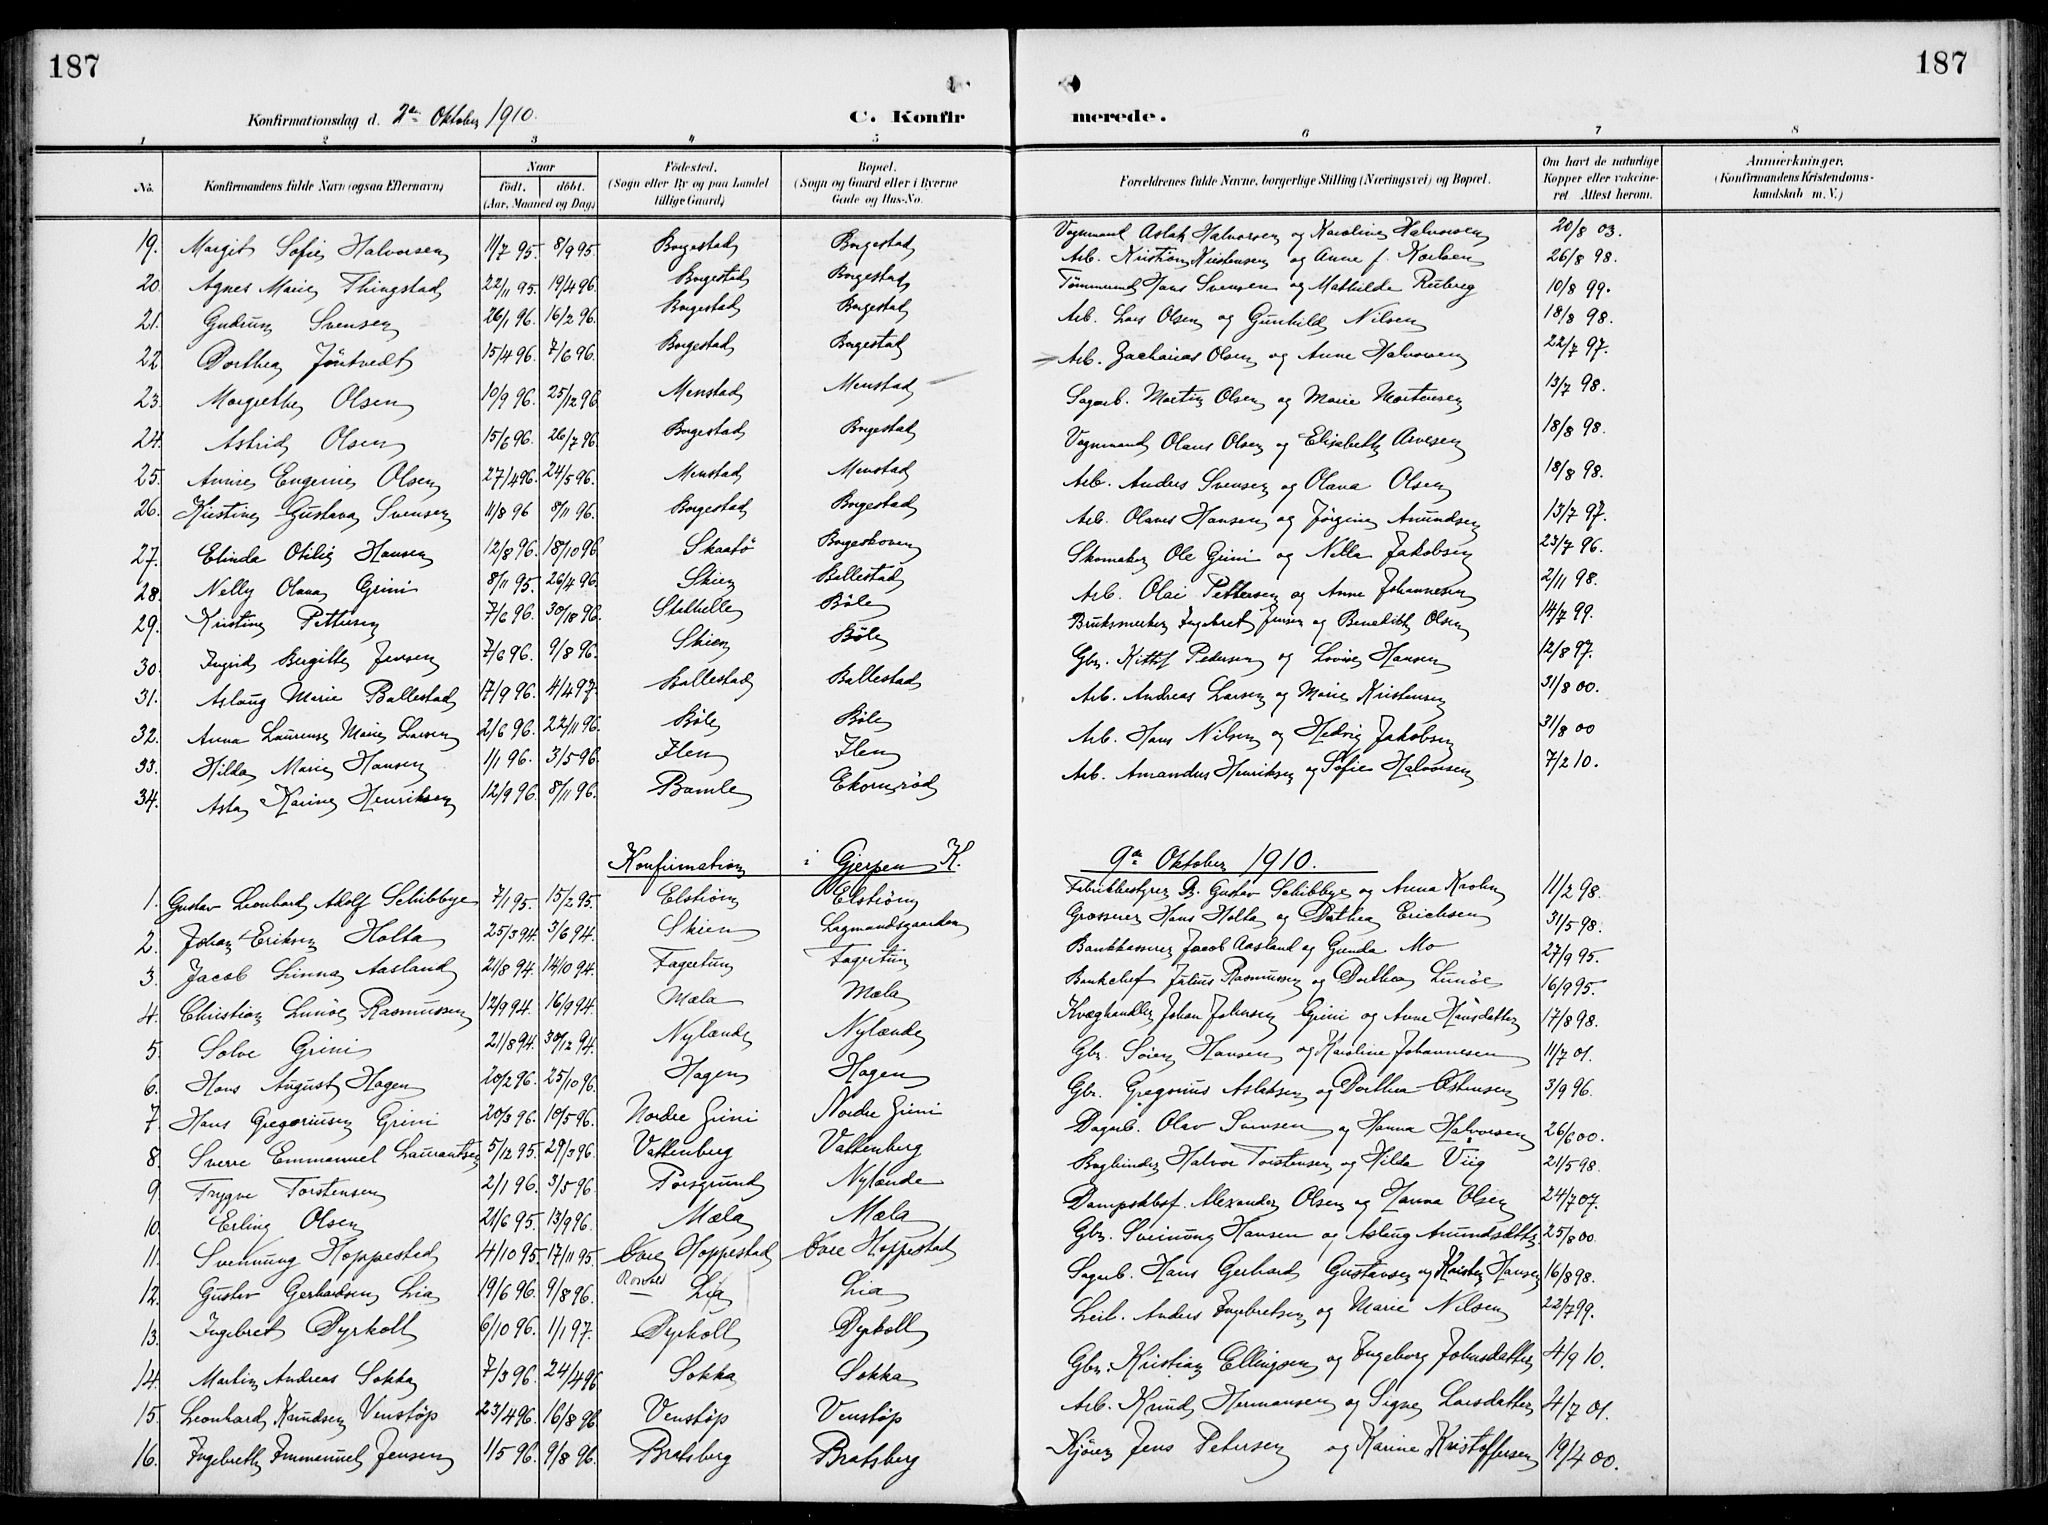 187
187
Konfirmationsdag d. 2den Oktober 1910.
C. Konfirmerede.
1 2 3 4 5 6 7 8
No. Konfirmandens fulde Navn (ogsaa Efternavn) Naar født. døbt. (Aar, Maaned og Dag) Fødested. (Sogn eller By og paa Landet tillige Gaard) Bopæl. (Sogn og Gaard eller i Byerne Gade og Hus-No. Forældrenes fulde Navne, borgerlige Stilling (Næringsvei) og Bopæl. Om havt de naturlige Kopper eller vaccineret Attest herom. Anmærkninger. (Konfirmandens Kristendomskundskab m. V.)
19. Margit Sofie Halvorsen 11/7 95. 8/9 95. Borgestad Borgestad Vognmand Aslak Halvorsen og Karoline Halvorsen 20/8 03.
20. Agnes Marie Thingstad 22/11 95. 19/4 96. Borgestad Borgestad Arb. Kristian Kristensen og Anne f. Karlsen 26/8 98.
21. Gudrun Svensen 26/1 96. 16/2 96. Borgestad Borgestad Tømmermd Hans Svensen og Mathilde Ruberg 10/8 99.
22 Dorthea Jöntvedt 15/4 96. 7/6 96. Borgestad Borgestad Arb. Lars Olsen og Gunhild Nilsen 18/8 98.
23. Margrethe Olsen 10/9 96. 25/12 96. Menstad Menstad Arb. Zacharias Olsen og Anne Halvorsen 22/7 97.
24. Astrid Olsen 15/6 96. 26/7 96. Borgestad Borgestad Sagarb. Martin Olsen og Marie Mortensen 13/7 98.
25. Annie Eugenie Olsen 27/4 96. 24/5 96. Menstad Menstad Vognmand Olaus Olsen og Elisabeth Arvesen 18/8 98.
26. Kristine Gustava Svensen 11/8 96 8/11 96. Borgestad Borgestad Arb. Anders Svensen og Olava Olsen 18/8 98.
27. Elinda Otilie Hansen 12/8 96. 18/10 96. Skaatö Borgeskoven Arb. Olaves Hansen og Jørgine Amundsen 13/7 97.
28. Nelly Olava Grini 8/11 95. 26/4 96. Skien Ballestad Skomaker Ole Grini og Nella Jakobsen 23/7 96.
29. Kristine Pettersen 7/6 96. 30/18 96. Stathelle Böle Arb. Olai Pettersen og Anne Johannesen 2/11 98.
30. Ingrid Bergitte Jensen 7/6 96. 9/8 96. Skien Böle Bruksmerker Ingebret Jensen og Benedikte Olsen 14/7 99.
31. Aslaug Marie Ballestad 17/9 96. 4/4 97. Ballestad Ballestad Gbr. Kittil Pedersen og Lovise Hansen 12/8 97.
32. Anna Laurense Marie Larsen 2/6 96. 22/11 96. Böle Böle Arb. Andreas Larsen og Marie Kristensen 31/8 00.
33. Hilda Marie Hansen 1/1 96. 3/5 96. Flen Flen Arb. Hans Nilsen og Hedvig Jakobsen 31/8 00
34. Asta Karine Henriksen 12/9 96. 8/11 96. Bamle Ekornrød Arb. Amandus Henriksen og Sofie Halvorsen 7/2 10.
Konfirmation i Gjerpen K. 9de Oktober 1910.
1. Gustav Leonhard Adolf Schibbye 7/1 95. 15/2 95. Elstrøm Elstrøm Fabrikbestyrer Gustav Schibbye og Anna Krohn 11/2 98.
2. Johan Eriksen Holta 25/3 94. 3/6 94. Skien Lagmandsgaarden Grosserer Hans Holta og Dorthea Erichsen 31/5 98.
3. Jacob Linna Aasland 21/8 94. 14/10 94. Fagertun Fagertun Bankkasserer Jacob Aasland og Gunda Mo 27/9 95.
4. Christian Lunöe Rasmussen 12/9 94. 16/9 94. Mæla Mæla Bankchef Julius Rasmussen og Dorthea Lunöe 16/9 95.
5. Solve Grini 21/8 94. 30/12 94. Nylænde Nylænde Kvæghandler Johan Johnsen Grini og Anne Hansdatter 17/8 98.
6. Hans August Hagen 20/2 96. 25/10 96. Hagen Hagen Gbr. Søren Hansen og Karoline Johannesen 11/7 01.
7. Hans Gregoriusen Grini 20/3 96. 10/5 96. Nordre Grini Nordre Grini Gbr. Gregorius Aslaksen og Dorthea Östensen 3/9 96.
8. Sverre Emmanuel Laurantsen 5/12 95. 29/3 96. Vattenberg Vattenberg Dagarb. Olav Svensen og Hanna Halvorsen 26/6 00.
9. Trygve Torstensen 2/1 96. 3/5 96. Porsgrund Nylænde Bogbinder Halvor Torstensen og Hilda Viig 21/5 98.
10. Erling Olsen 21/6 95. 13/9 96. Mæla Mæla Dampskbsf. Alexander Olsen og Hanna Olsen 24/7 07.
11. Svennung Hoppestad 4/10 95. 17/11 95. Övre Hoppestad Övre Hoppestad Gbr. Sveinung Hansen og Aslaug Amundsdatter 25/8 00.
12. Gustav Gerhardsen Lia 19/6 96. 9/8 96. Lia Lia Sagarb. Hans Gerhard Gustavsen og Karsten Hansen 16/8 98.
13. Ingebret Dyrkoll 6/10 96. 1/1 97. Dyrkoll Dyrkoll Leil. Anders Ingebretsen og Marie Nilsen 22/7 99.
14. Martin Andreas Sokka 7/3 96. 24/4 96 Sokka Sokka Gbr. Kristian Ellingsen og Ingeborg Johnsdatter 4/9 10.
15. Leonhard Knudsen Venstöp 23/4 96. 16/8 96 Venstöp Venstöp Arb. Knud Hermansen og Signe Larsdatter 4/7 01.
16. Ingebreth Immanuel Jensen 1/5 96. 9/8 96. Bratsberg Bratsberg Kjörer Jens Petersen og Karine Kristoffersen 19/4 00.